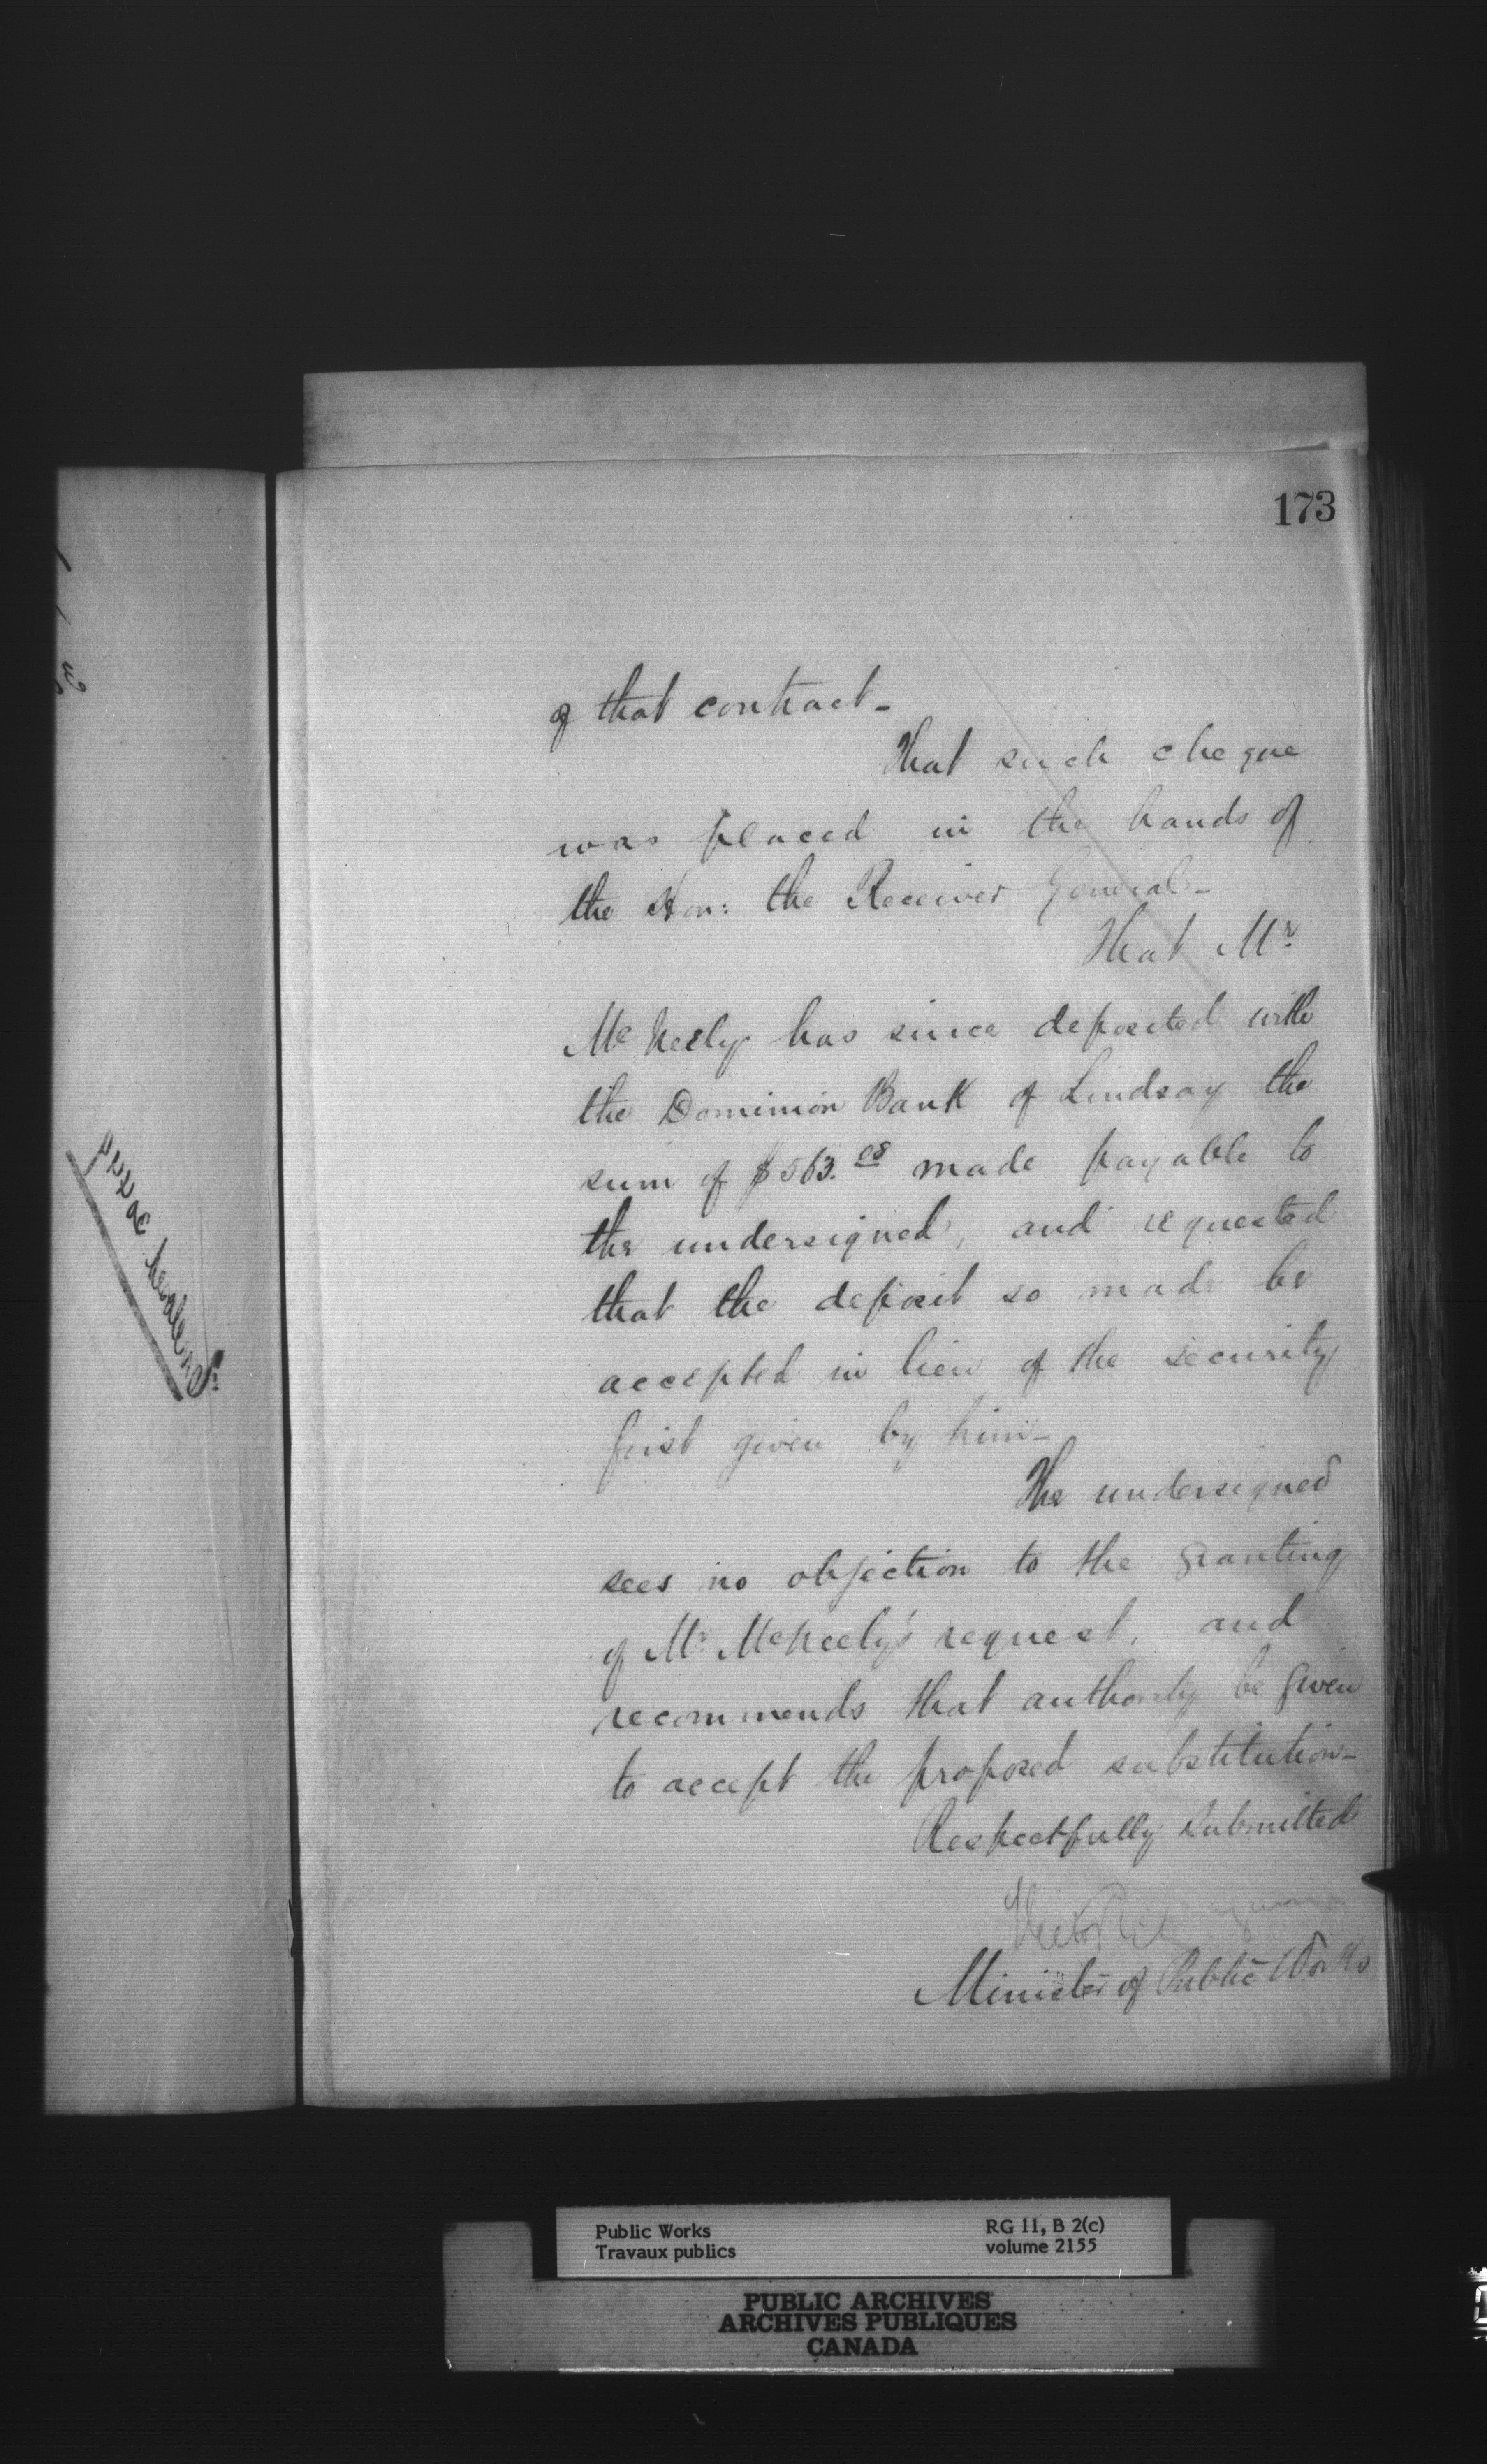 173
of that contract-
That such cheque
was placed in the hands of
the Hon: the Receiver General-
That Mr.
McNeely has since deposited with
the Dominion Bank of Lindsay the
sum of $563.08 made payable to
the undersigned, and requested
that the deposit so made be
accepted in lieu of the security
first given by him-
The undersigned
sees no objection to the granting
of Mr. McNeely's request, and
recommends that authority be given
to accept the proposed substitution-
Respectfully submitted
Minister of Public Works
Public Works
Travaux publics
RG 11, B 2(c)
volume 2155
PUBLIC ARCHIVES
ARCHIVES PUBLIQUES
CANADA